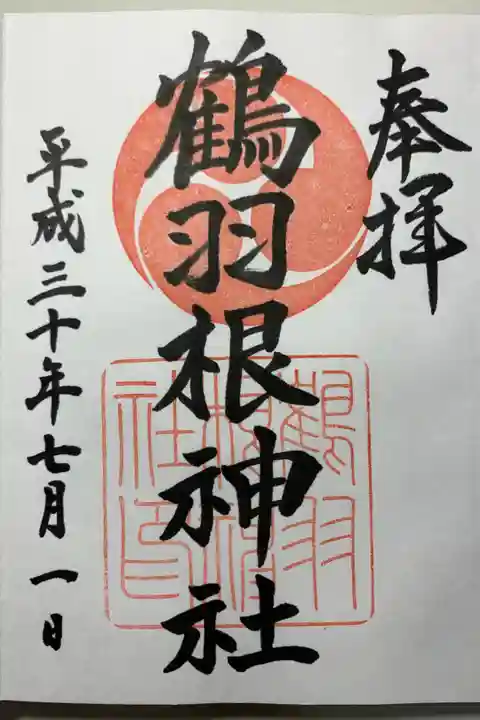 奉拝
鶴羽根神社
平成三十年七月一日
鶴羽根神社印